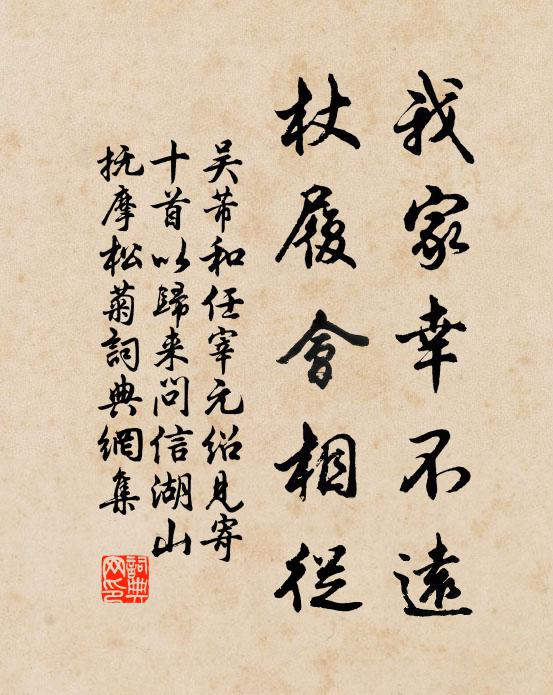 我家幸不遠
杖履會相從
吴芾和任宰元紹見寄
十首以歸来問信湖山
抚摩松菊詞典網集
詞典网印